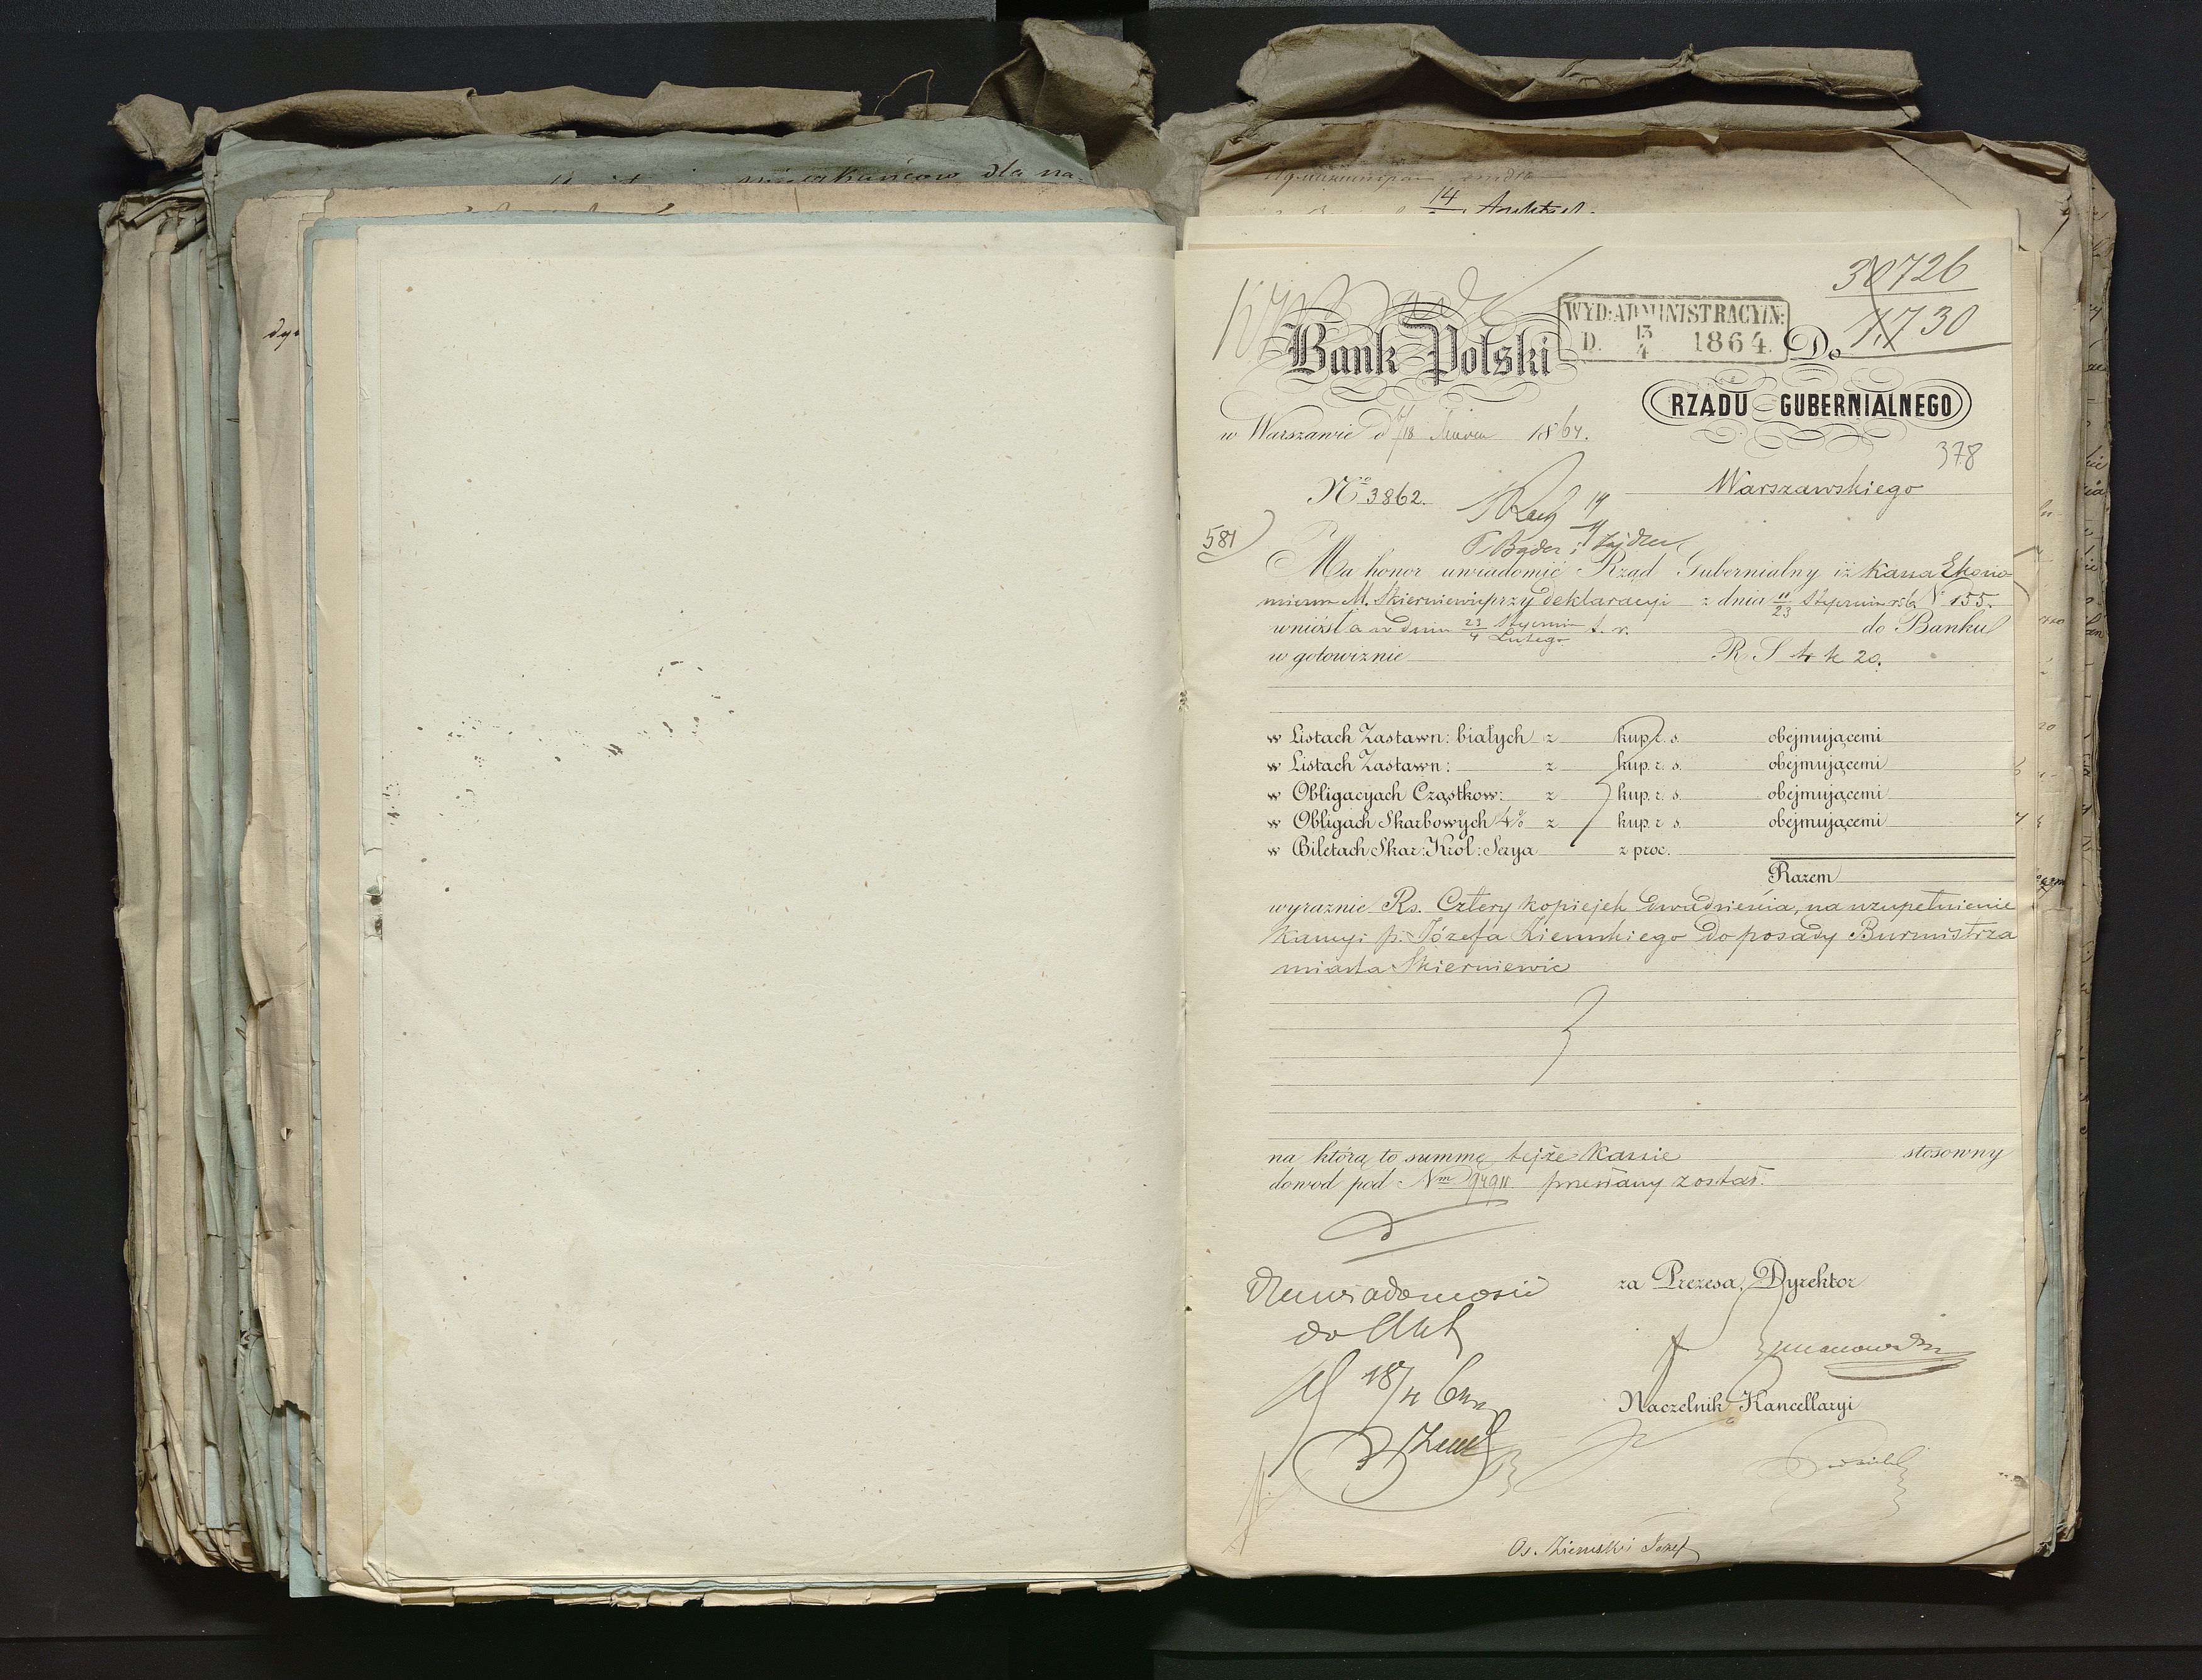 dla na-
14
30726
1,730
Bank Polski
WYD: ADMINISTRACYJN:
D. 13/4 1864.
Do
RZĄDU GUBERNIALNEGO
w Warszawie d 6/18 Marca 1864.
378
Warszawskiego
No 3862.
14/4
581
Ma honor uwiadomić Rząd Gubernialny iż Kassa Ekono-
miczna M. Skierniewic przy deklaracyi z dnia 11/23 Stycznia rb. No 155.
wniosła w dniu 23 Stycznia / 4 Lutego t. r. do Banku
w gotowiznie R S 4 k 20.
w Listach Zastawn: białych z kup. z. s. obejmującemi
w Listach Zastawn: z kup. z. s. obejmującemi
w Obligacyach Cząstkow: z kup. z. s. obejmującemi
w Obligach Skarbowych 4% z kup. z. s. obejmującemi
w Biletach Skar: Król: Serya z proc.
Razem
wyraznie Rs. Cztery kopiejek dwadzieścia, na uzupełnienie
Kaucyi p. Józefa Ziemskiego do posady Burmistrza
miasta Skierniewic
na którą to summę tejże Kassie stosowny
dowod pod Nm 94911 przesłany został.
za Prezesa, Dyrektor
do Akt
18/4
Naczelnik Kancellaryi
Os. Ziemski Józef